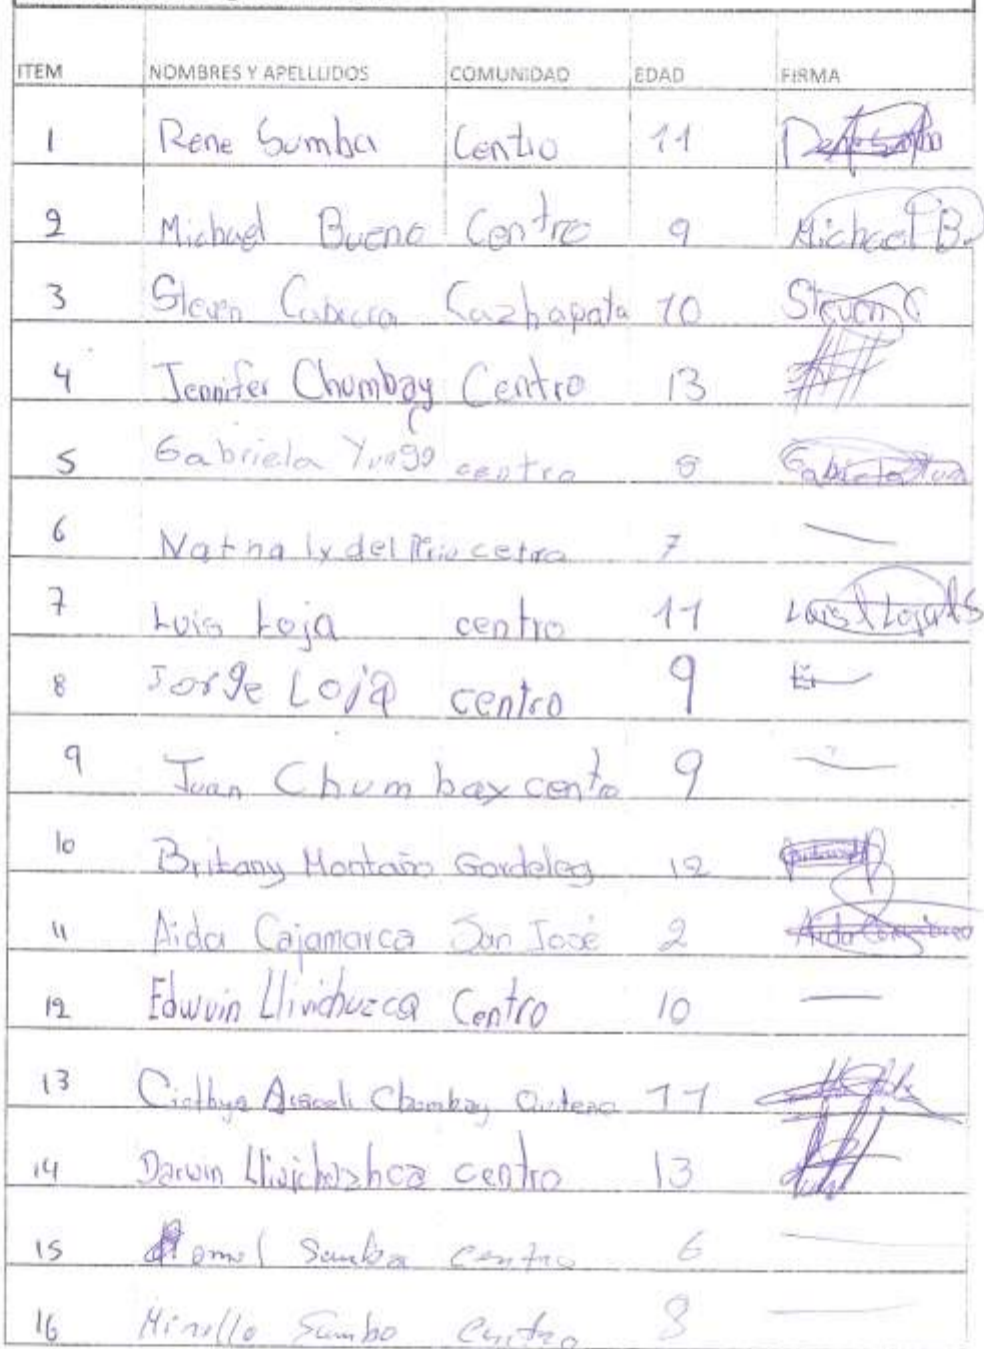 ITEM NOMBRES Y APELLLIDOS COMUNIDAD EDAD FIRMA
1 Rene Sumba Centro 11
2 Michael Bueno Centro 9 Michael B.
3 Steven Cabrera Cazhapata 10 Steven C
4 Jennifer Chumbay Centro 13
5 Gabriela Yunga centro 8
6 Nathaly del Rio cetro 7
7 Luis Loja centro 11
8 Jorge Loja centro 9
9 Juan Chumbay centro 9
10 Britany Montaño Gordeleg 12
11 Aida Cajamarca San José 2
12 Edwuin Llivichuzca Centro 10
13 Araceli Chumbay 11
14 Darwin Llivichuzhca centro 13
15 Sumba centro 6
16 Sumbo 8